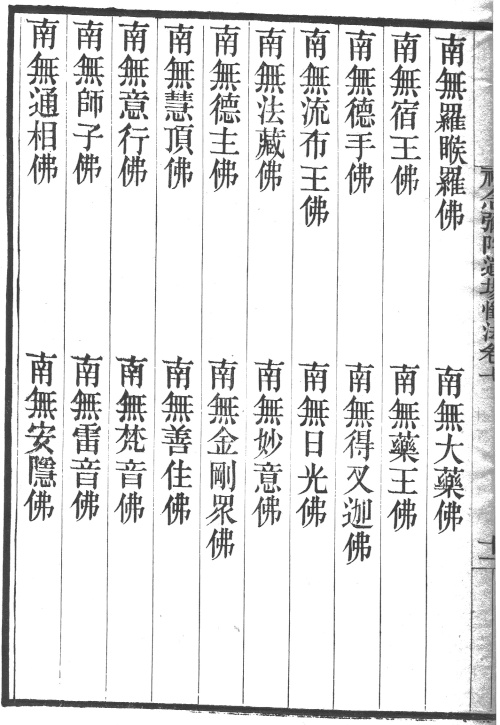 南無羅睺羅佛　南無大藥佛
南無宿王佛　南無藥王佛
南無德手佛　南無得叉迦佛
南無流布王佛　南無日光佛
南無法藏佛　南無妙意佛
南無德主佛　南無金剛眾佛
南無慧頂佛　南無善住佛
南無意行佛　南無梵音佛
南無師子佛　南無雷音佛
南無通相佛　南無安隱佛